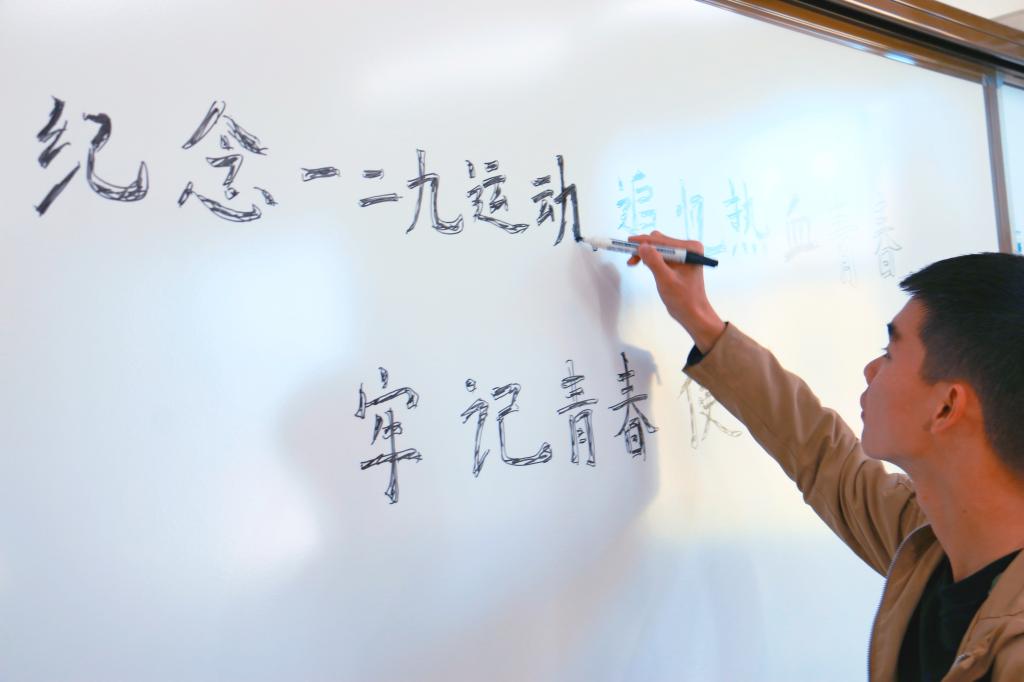 纪念一二九运动 追忆热血青春
牢记青春使